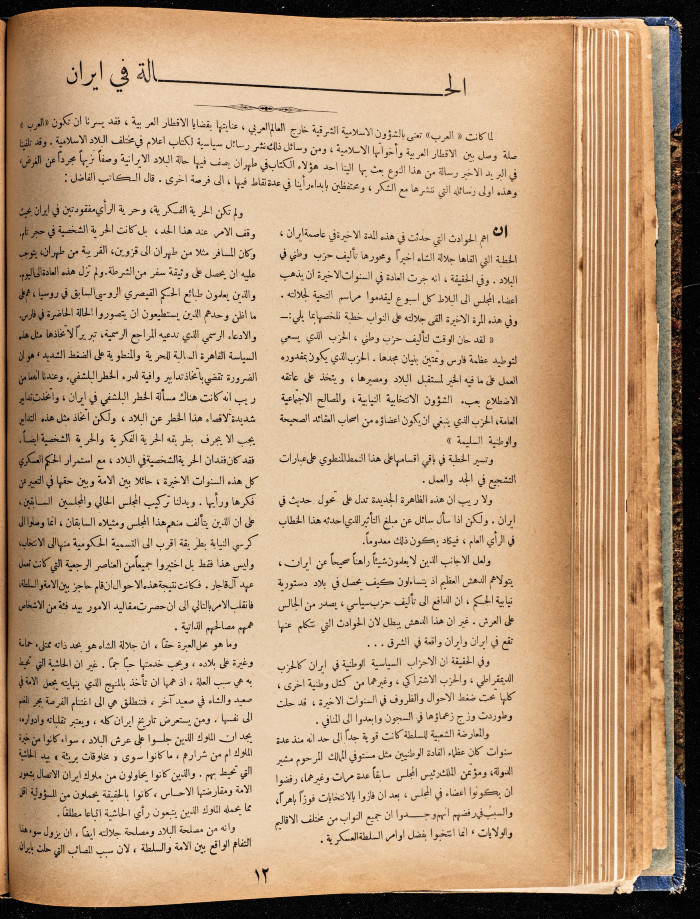 الحـــالة في ايران
لما كانت « العرب » تعنى بالشؤون الاسلامية الشرقية خارج العالم العربي ، عنايتها بقضايا الاقطار العربية ، فقد يسرنا ان تكون «العرب »
صلة وصل بين الاقطار العربية وأخواتها الاسلامية ، ومن وسائل ذلك نشر رسائل سياسية لكتاب اعلام في مختلف البلاد الاسلامية . وقد تلقينا
في البريد الاخير رسالة من هذا النوع بعث بها الينا احد هؤلاء الكتاب في طهران يصف فيها حالة البلاد الايرانية وصفاً نزيهاً مجرداً عن الغرض،
وهذه اولى رسائله التي ننشرها مع الشكر ، ومحتفظين بابداء رأينا في عدة نقاط فيها ، الى فرصة اخرى . قال الكاتب الفاضل :
ان اهم الحوادث التي حدثت في هذه المدة الاخيرة في عاصمة ايران ،
الخطبة التي القاها جلالة الشاه اخيراً ومحورها تأليف حزب وطني في
البلاد . وفي الحقيقة ، انه جرت العادة في السنوات الاخيرة ان يذهب
اعضاء المجلس الى البلاط كل اسبوع ليقدموا مراسم التحية لجلالته .
وفي هذه المرة الاخيرة القى جلالته على النواب خطبة نلخصها بما يلي :—
« لقد حان الوقت لتأليف حزب وطني ، الحزب الذي يسعى
لتوطيد عظمة فارس وتمتين بنيان مجدها . الحزب الذي يكون بمقدوره
العمل على ما فيه الخير لمستقبل البلاد ومصيرها ، ويتخذ على عاتقه
الاضطلاع بعبء الشؤون الانتخابية النيابية ، والمصالح الاجتماعية
العامة، الحزب الذي ينبغي ان يكون اعضاؤه من اصحاب العقائد الصحيحة
والوطنية السليمة »
وتسير الخطبة في باقي اقسامها على هذا النمط المنطوي على عبارات
التشجيع في الجد والعمل .
ولا ريب ان هذه الظاهرة الجديدة تدل على تحول حديث في
ايران . ولكن اذا سأل سائل عن مبلغ التأثير الذي احدثه هذا الخطاب
في الرأي العام ، فيكاد يكون ذلك معدوماً.
ولعل الاجانب الذين لا يعلمون شيئاً راهناً صحيحاً عن ايران ،
يتولاهم الدهش العظيم اذ يتساءلون كيف يحصل في بلاد دستورية
نيابية الحكم ، ان الدافع الى تأليف حزب سياسي ، يصدر من الجالس
على العرش . غير ان هذا الدهش يبطل لان الحوادث التي نتكلم عنها
تقع في ايران وايران واقعة في الشرق ...
وفي الحقيقة ان الاحزاب السياسية الوطنية في ايران كالحزب
الديمقراطي ، والحزب الاشتراكي ، وغيرهما من كتل وطنية اخرى ،
كلها تحت ضغط الاحوال والظروف في السنوات الاخيرة ، قد حلت
وطوردت وزج زعماؤها في السجون وابعدوا الى المنافي .
والمعارضة الشعبية للسلطة كانت قوية جداً الى حد انه منذ عدة
سنوات كان عظماء القادة الوطنيين مثل مستوفي المالك المرحوم مشير
الدولة، ومؤتمن الملك رئيس المجلس سابقاً عدة مرات وغيرهما، رفضوا
ان يكونوا اعضاء في المجلس ، بعد ان فازوا بالانتخابات فوزاً باهراً،
والسبب في رفضهم انهم وجدوا ان جميع النواب من مختلف الاقاليم
والولايات ، انما انتخبوا بفضل اوامر السلطة العسكرية .
ولم تكن الحرية الفكرية، وحرية الرأي مفقودتين في ايران بحيث
وقف الامر عند هذا الحد، بل كانت الحرية الشخصية في حجر تام.
وكان المسافر مثلا من طهران الى قزوين، القريبة من طهران، يتوجب
عليه ان يحصل على وثيقة سفر من الشرطة. ولم تزل هذه العادة الى اليوم.
والذين يعلمون طبائع الحكم القيصري الروسي السابق في روسيا، هم على
ما اظن وحدهم الذين يستطيعون ان يتصوروا الحالة الحاضرة في فارس.
والادعاء الرسمي الذي تدعيه المراجع الرسمية، تبريراً لاتخاذها مثل هذه
السياسة القاهرة السالبة للحرية والمنطوية على الضغط الشديد، هو ان
الضرورة تقضي باتخاذ تدابير واقية لدرء الخطر البلشفي. وعندنا انه ما من
ريب انه كانت هناك مسألة الخطر البلشفي في ايران ، واتخذت تدابير
شديدة لاقصاء هذا الخطر عن البلاد ، ولكن اتخاذ مثل هذه التدابير
يجب الا يجرف بطريقه الحرية الفكرية والحرية الشخصية ايضاً.
فقد كان فقدان الحرية الشخصية في البلاد ، مع استمرار الحكم العسكري
كل هذه السنوات الاخيرة ، حائلا بين الامة وبين حقها في التعبير عن
فكرها ورأيها . ويدلنا تركيب المجلس الحالي والمجلسين السابقين،
على ان الذين يتألف منهم هذا المجلس ومثيلاه السابقان ، انما وصلوا الى
كرسي النيابة بطريقة اقرب الى التسمية الحكومية منها الى الانتخاب،
وليس هذا فقط بل اختيروا جميعاً من العناصر الرجعية التي كانت تعمل
عهد آل قاجار . فكانت نتيجة هذه الاحوال ان قام حاجز بين الامة والسلطة،
فانقلب الامر بالتالي الى ان حصرت مقاليد الامور بيد فئة من الاشخاص
همهم مصالحهم الذاتية .
وما هو محل العبرة حقاً ، ان جلالة الشاه هو بحد ذاته ممتلىء حماسة
وغيرة على بلاده ، ويحب خدمتها حباً جماً . غير ان الحاشية التي تحيط
به هي سبب العلة ، اذ همها ان تأخذ بالمنهج الذي بنهايته يجعل الامة في
صعيد والشاه في صعيد آخر ، فتنطلق هي الى اغتنام الفرصة بجر المغنم
الى نفسها . ومن يستعرض تاريخ ايران كله ، ويعتبر تقلباته وادواره،
يجد ان الملوك الذين جلسوا على عرش البلاد ، سواء كانوا من خيرة
الملوك ام من شرارهم ، ما كانوا سوى « مخلوقات بريئة » بيد الحاشية
التي تحيط بهم . والذين كانوا يحاولون من ملوك ايران الاتصال بشعور
الامة ومقارضتها الاحساس ، كانوا بالحقيقة يحملون من المسؤولية اقل
مما يحمله الملوك الذين يتبعون رأي الحاشية اتباعا مطلقاً .
وانه من مصلحة البلاد ومصلحة جلالته ايضاً ، ان يزول سوء هذا
التفاهم الواقع بين الامة والسلطة ، لان سبب المصائب التي حلت بايران
١٢